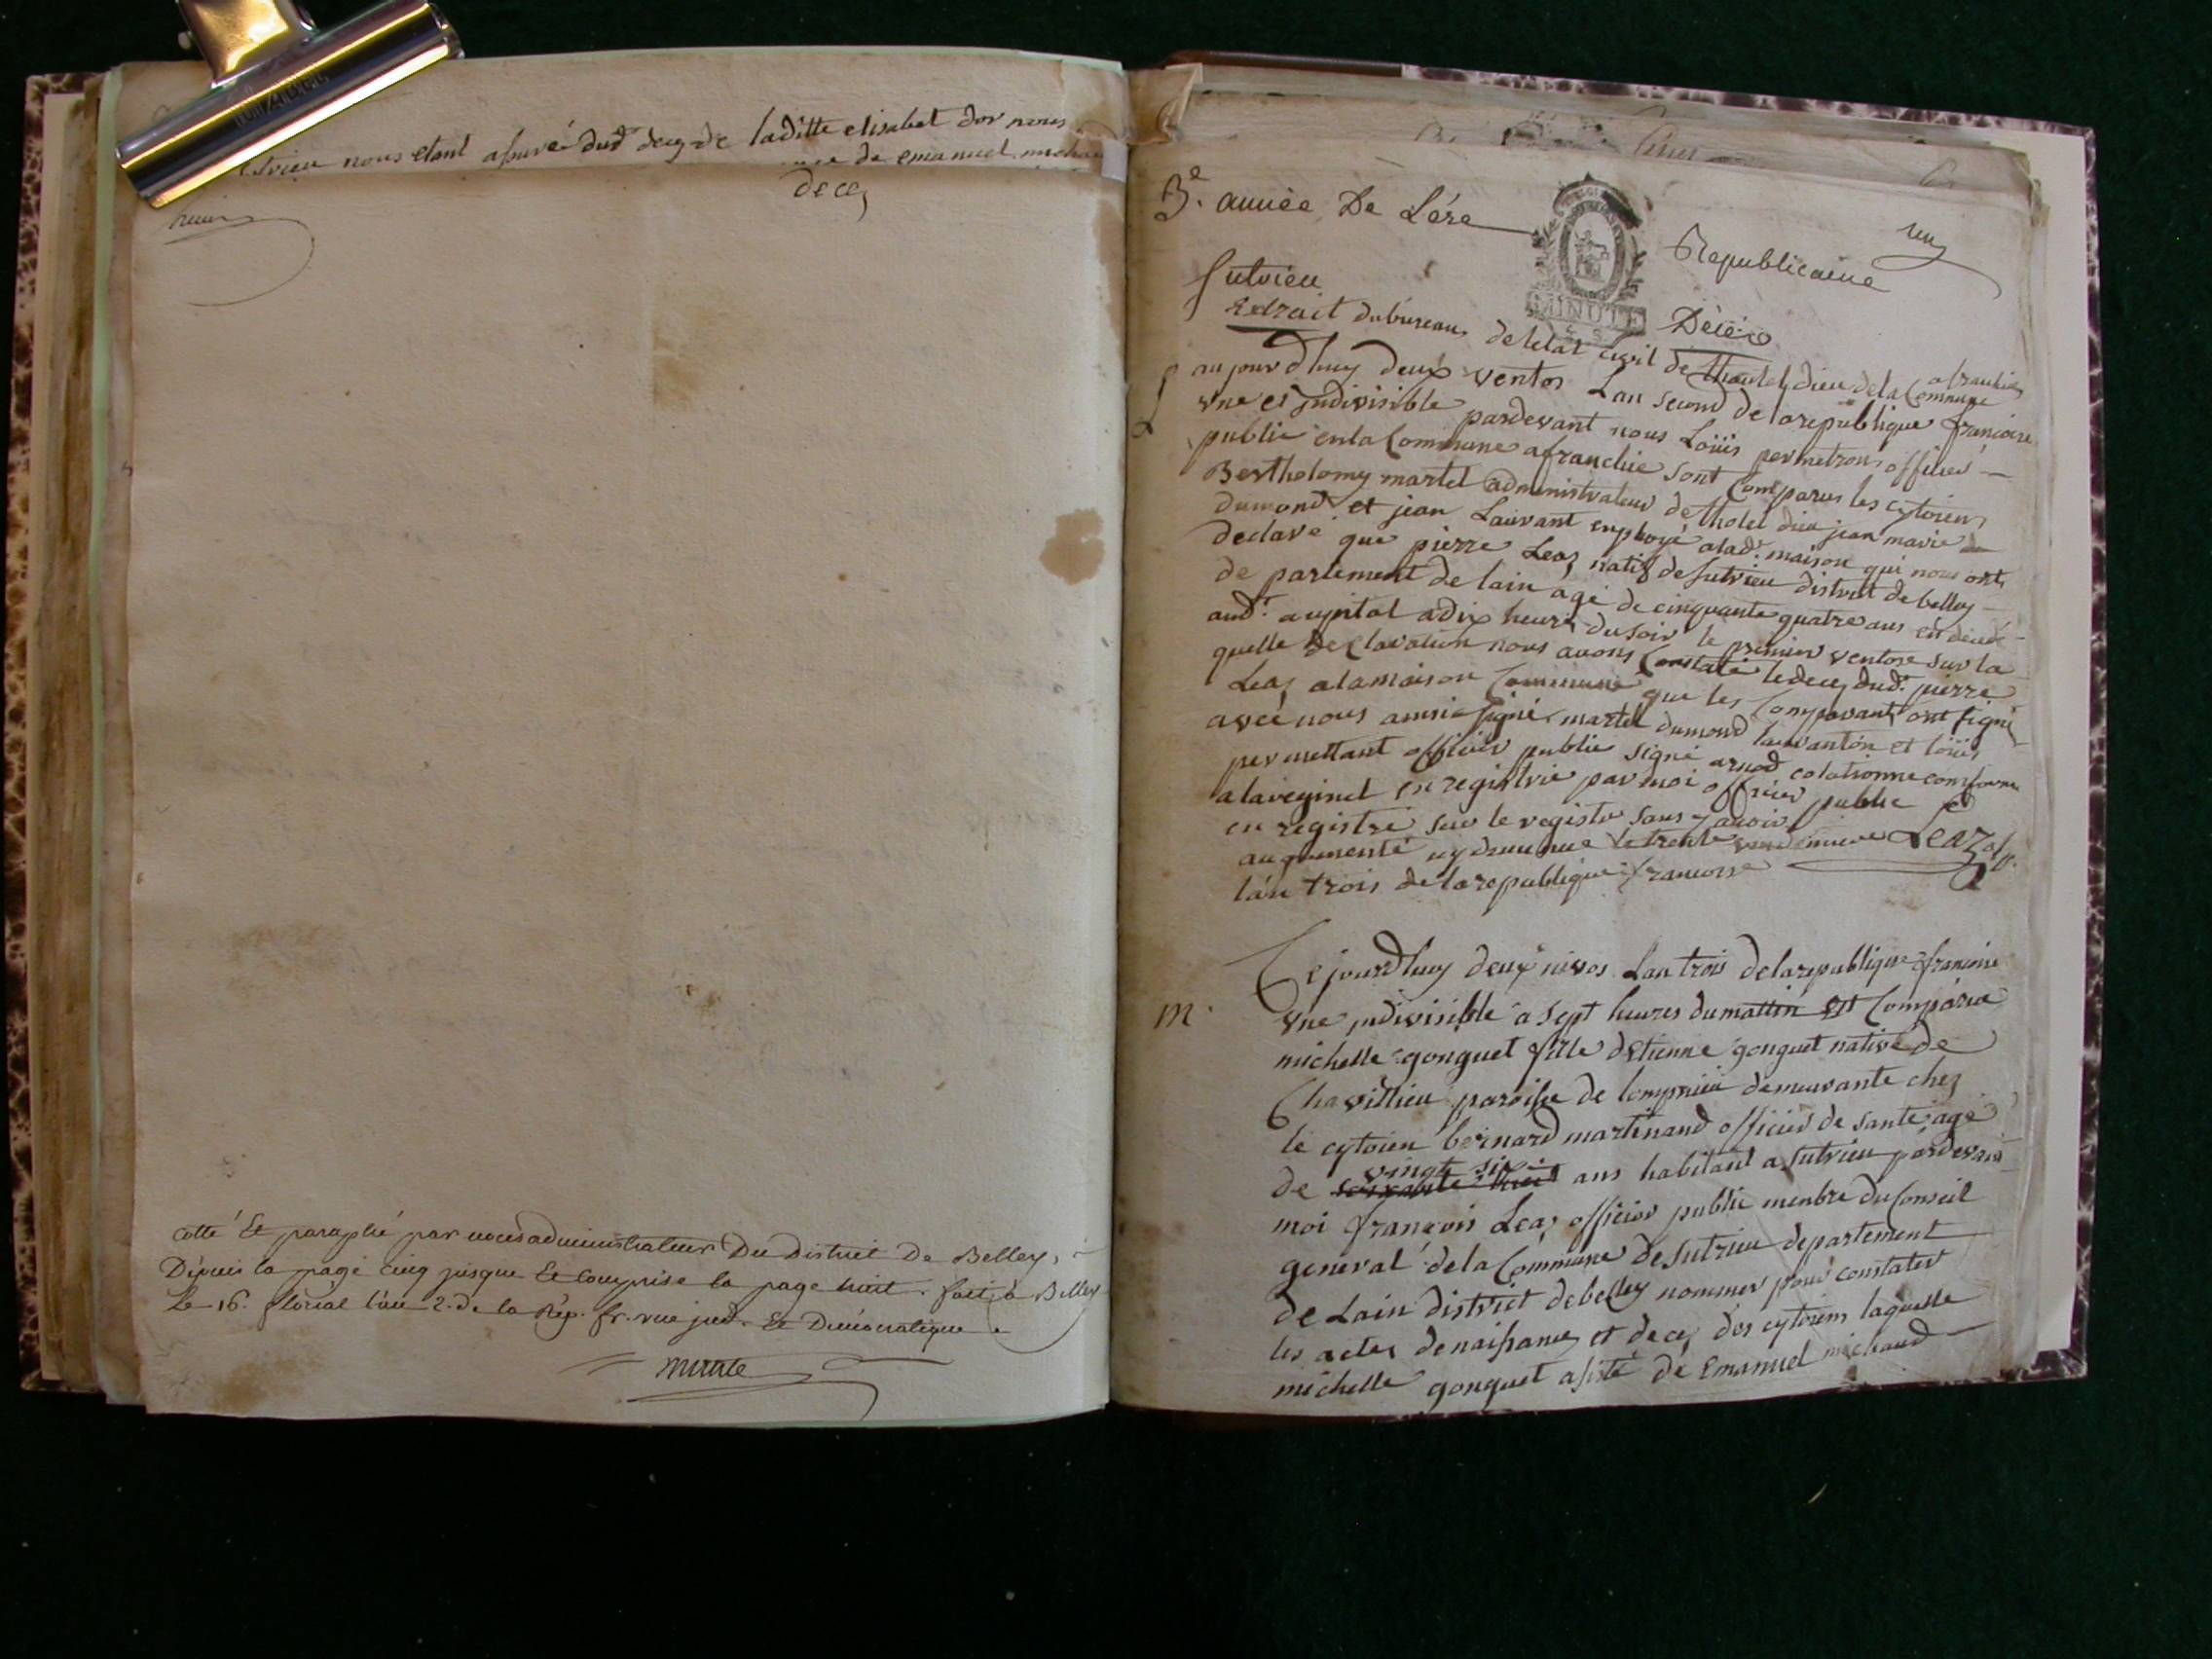 nous etant assuré dud deces de laditte elisabet dor nous
de emanuel
deces
huit
cotté Et paraphé par nous administrateur Du District De Belley,
Depuis la page cinq jusque Et comprise la page huit. fait à Belley
Le 16. floréal l'an 2. de la Rép. fr. une ind. Et Démocratique.
3.e année De L'ére Republicaine
neuf
MINUTE
Sutrieu
Décés
Extrait du bureau de letat civil de lhautel dieu dela Commune afranchie
aujourdhuy deux ventos Lan second de larepublique francoise
une et indivisible pardevant nous Loüis permetton officier
public en la Commune afranchie sont Comparus les cytoiens
Bertholomy martel administrateur de lhotel dieu jean marie
dumond et jean Lauvant employé alad. maison qui nous ont
declaré que pierre Leaz natif de sutrieu district de belley
de partement de lain agé de cinquante quatre ans est décédé
aud. aupital a dix heure du soir le premier ventose sur la
quelle declaration nous avons Constaté le deces dud. pierre
Leaz a la maison Commune que les Comparant ont signé
avec nous ainsi signé martel dumond lauvanton et loüis
permettant officier public signé arnod colationne conforme
a lareginel en registrée par moi officier public
en registré sur le registre sans y avoir
augmenté ny diminué le trente vendemiaire LEAZ off.
lán trois de larepublique francoise
L
Cejourdhuy deux nivos Lan trois delarepublique francoise
une indivisible a sept heures du mattin est Comparue
M.
michelle gonguet fille detienne gonguet native de
Chavillieu paroisse de lompnieu demeurante chez
le cytoien bernard martinand officier de santé agé
vingt six
de soixante huit ans habitant a sutrieu pardevant
moi françois Leaz officier public menbre du Conseil
general de la Commune de sutrieu departement
de Lain district de belley nommer pour constater
les actes de naissances et deces des cytoiens laquelle
michelle gonguet assisté de Emanuel michaud